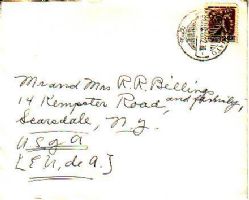 Mr and Mrs R. R. Billings
and family,
14 Kempster Road,
Scarsdale, N.Y.
U S g A
[E U, de A.]